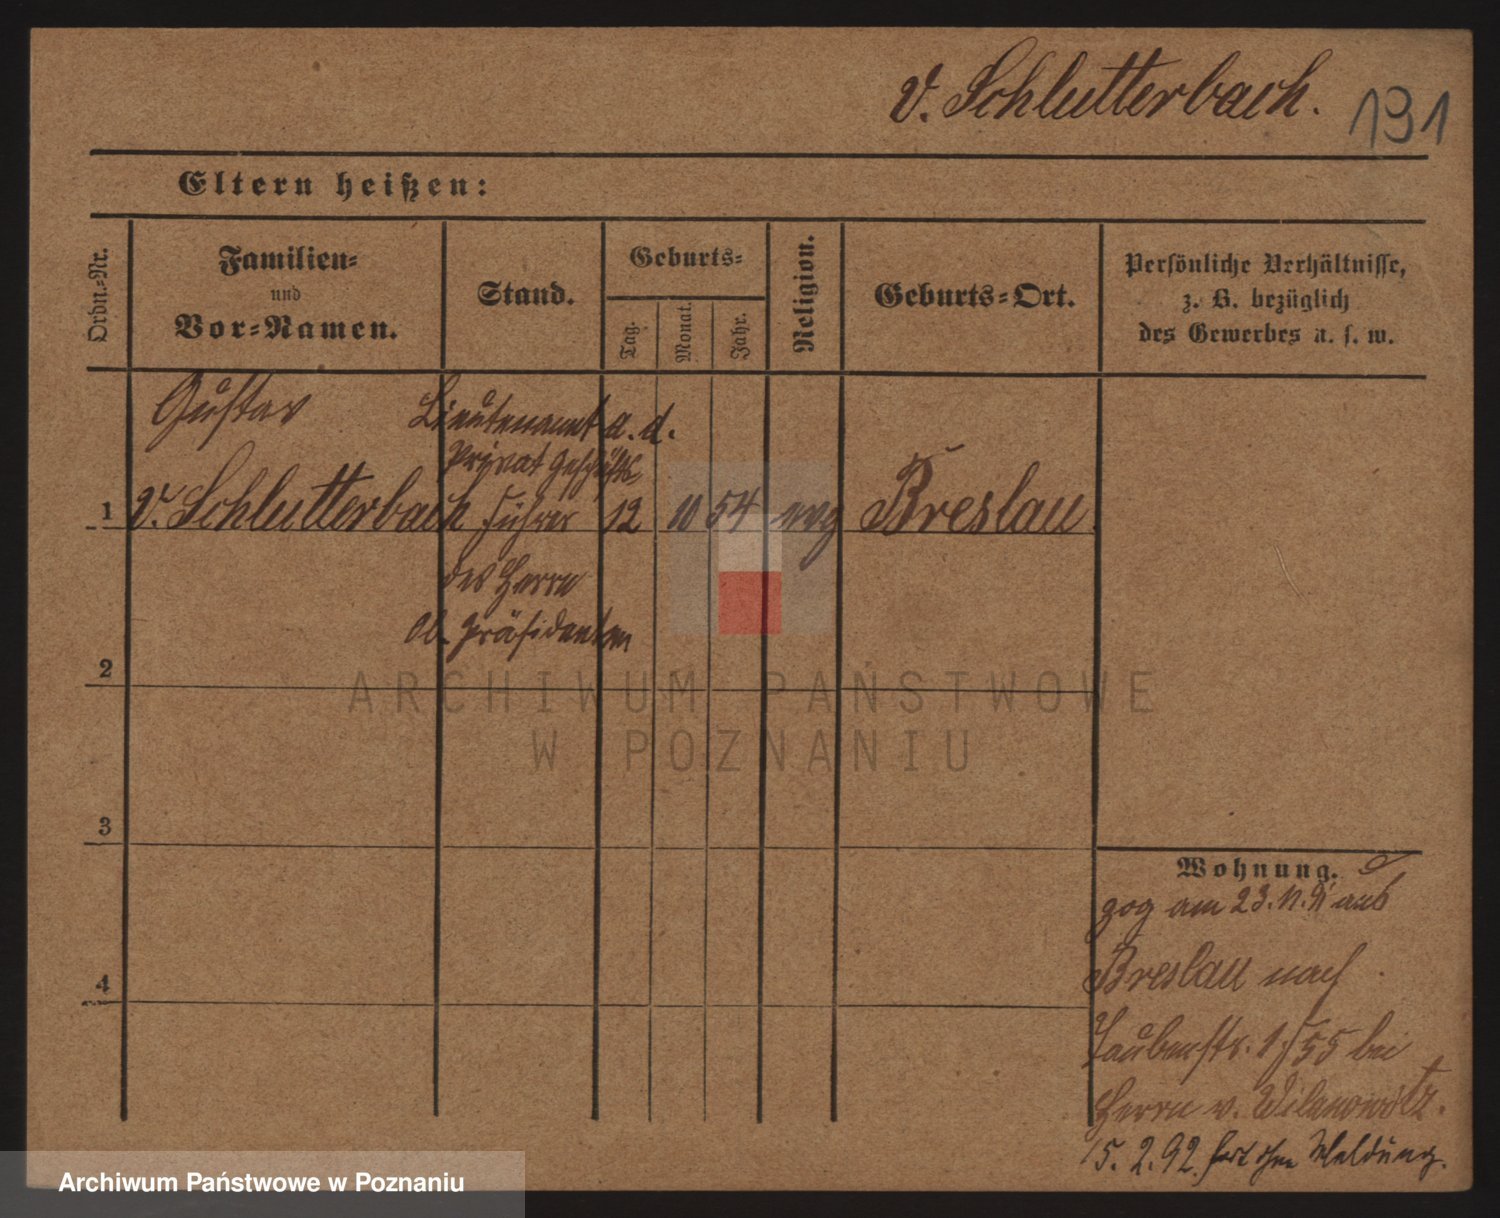 v. Schlutterbach. 131
Eltern heißen:
Ordn.-Nr.
Familien-
und
Vor-Namen.
Stand.
Geburts-
Tag.
Monat.
Jahr.
Religion.
Geburts-Ort.
Persönliche Verhältnisse,
z. B. bezüglich
des Gewerbes u. s. w.
Gustav
Lieutenant a. d.
Privat Geschäfts
1 v. Schlutterbach führer 12 10 54 evg Breslau
des Herrn
Ob. Präsidenten
2
ARCHIWUM PAŃSTWOWE
W POZNANIU
3
4
Wohnung.
zog am 23. 11. 91 aus
Breslau nach
Taubenstr. 1/55 bei
Herrn v. Wilamowitz.
15. 2. 92. fort ohne Meldung.
Archiwum Państwowe w Poznaniu